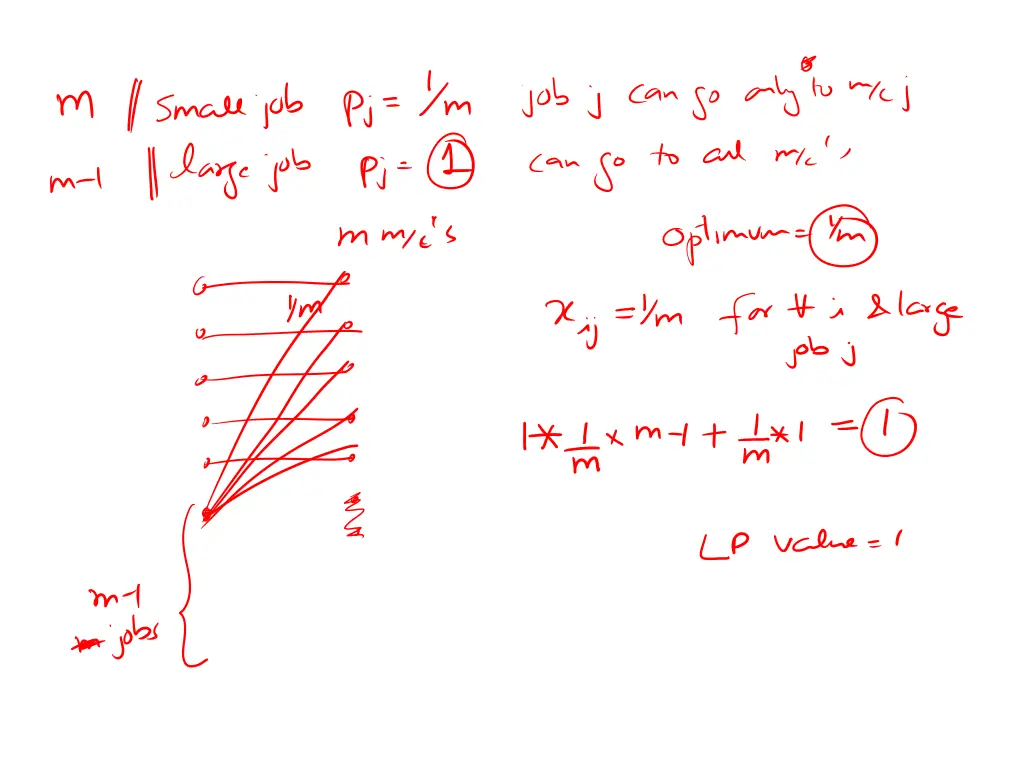 m small job Pj = 1/m job j can go only to m/c j
m-1 large job Pj = 1 can go to all m/c's
m m/c's
optimum = 1/m
1/m
x_ij = 1/m for ∀ i & large
job j
1 * 1/m × m-1 + 1/m * 1 = 1
LP value = 1
m-1
jobs